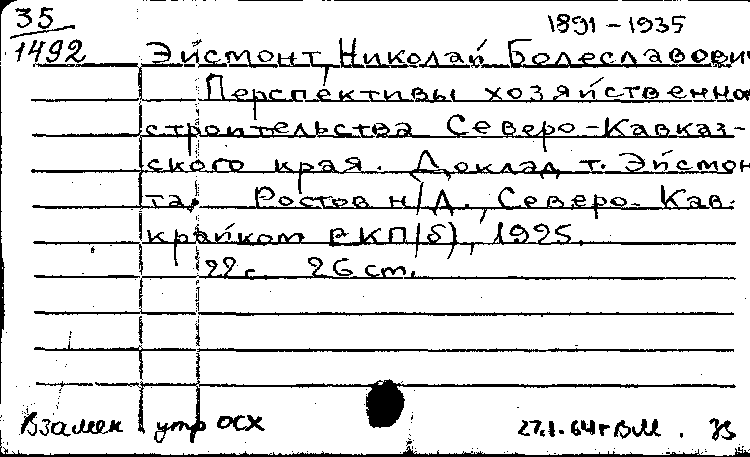 35
1891 - 1935
1492 Эйсмонт, Николай Болеславович
Перспективы хозяйственно
строительства Северо-Кавказ-
ского края. Доклад т. Эйсмон
та. Ростов н/Д., Северо-Кав.
крайком РКП(б), 1925.
22 с. 26 см.
Взамен утр ОСХ 27.1.64г ВМ.